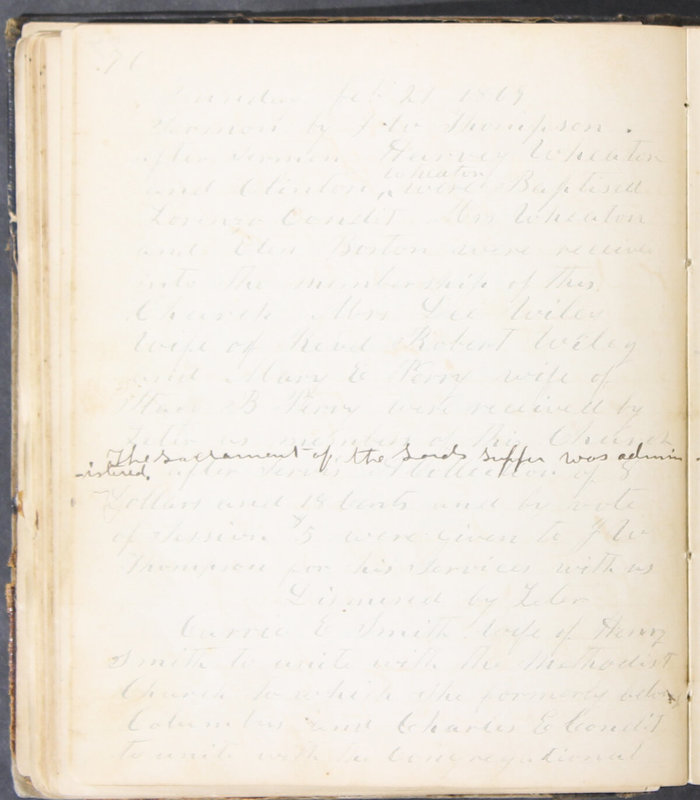 76
Sunday Feb 21 1869
Sermon by J W Thompson.
after sermon Harvey Wheaton
and Clinton Wheaton were Baptised
Lorenzo Condit Mrs Wheaton
and Elen Boston were receive
into the membership of this
Church Mrs Dee Wiley
Wife of Revd Robert Wiley
and Mary E Perry wife of
B Perry were received by
Leter as members of this Church
The Sacrament of the Lords Supper was admin-
-istered. after Serm Collection of 8
Dollars and 18 cents and by vote
of Session $5 were given to J W
Thompson for his services with us
Dismised by Leter
Carrie E Smith Wife of Henry
Smith to unite with the Methodist
Church to which she formerly
Columbus and Charles E Condit
to unite with the Congregational